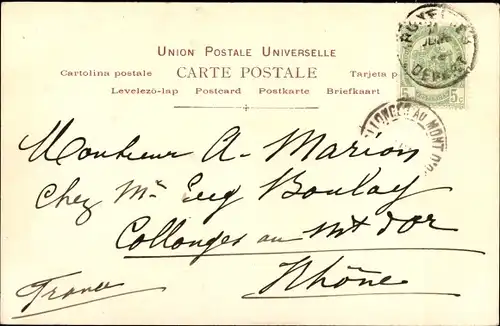 UNION POSTALE UNIVERSELLE
Cartolina postale CARTE POSTALE Tarjeta p
Levelezö-lap Postcard Postkarte Briefkaart
BRUXELLES
DEPART
5c 5c
COLLONGES AU MONT D'OR
Monsieur A. Marion
Chez Mr Eug Boulay
Collonges au Mt d'or
Rhône
France